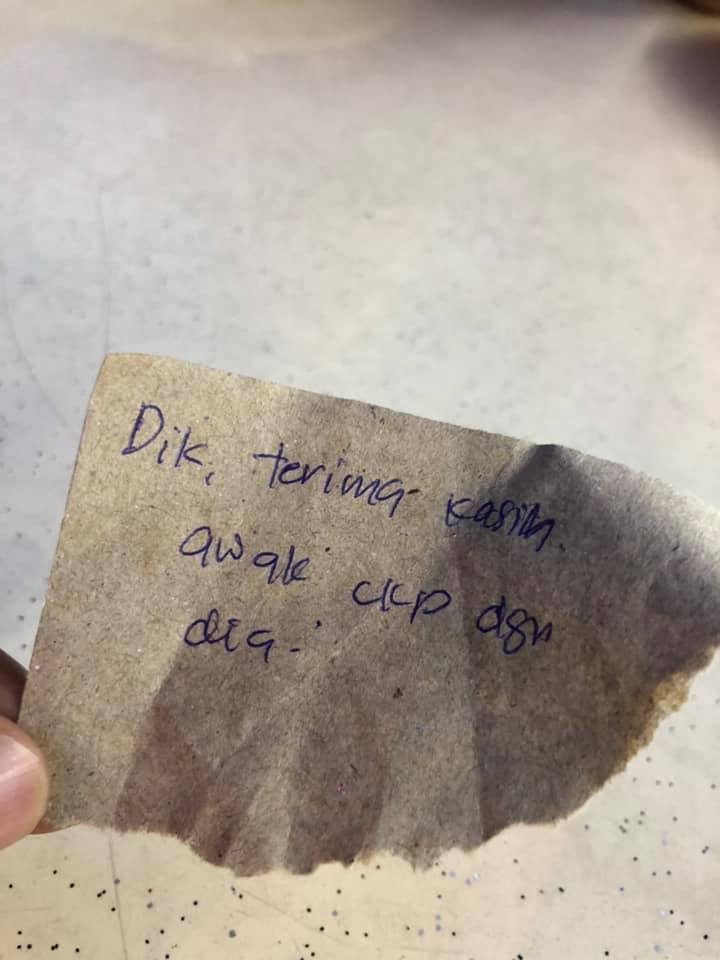 Dik, terima kasih.
awak ckp dgn
dia.